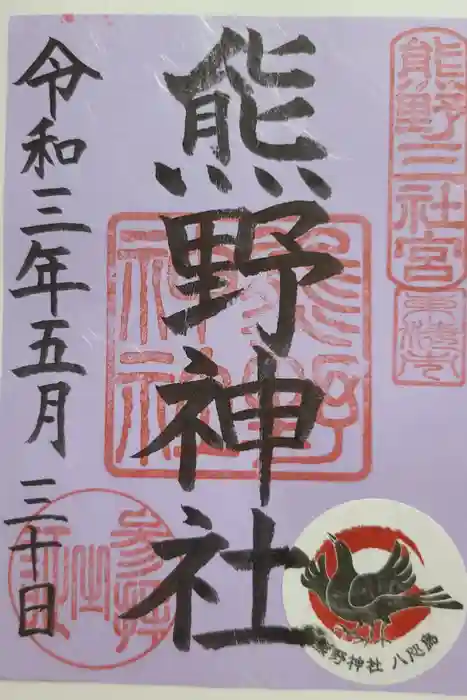 熊野三社宮
熊野神社
熊野神社
令和三年五月三十日
熊野神社 八咫烏